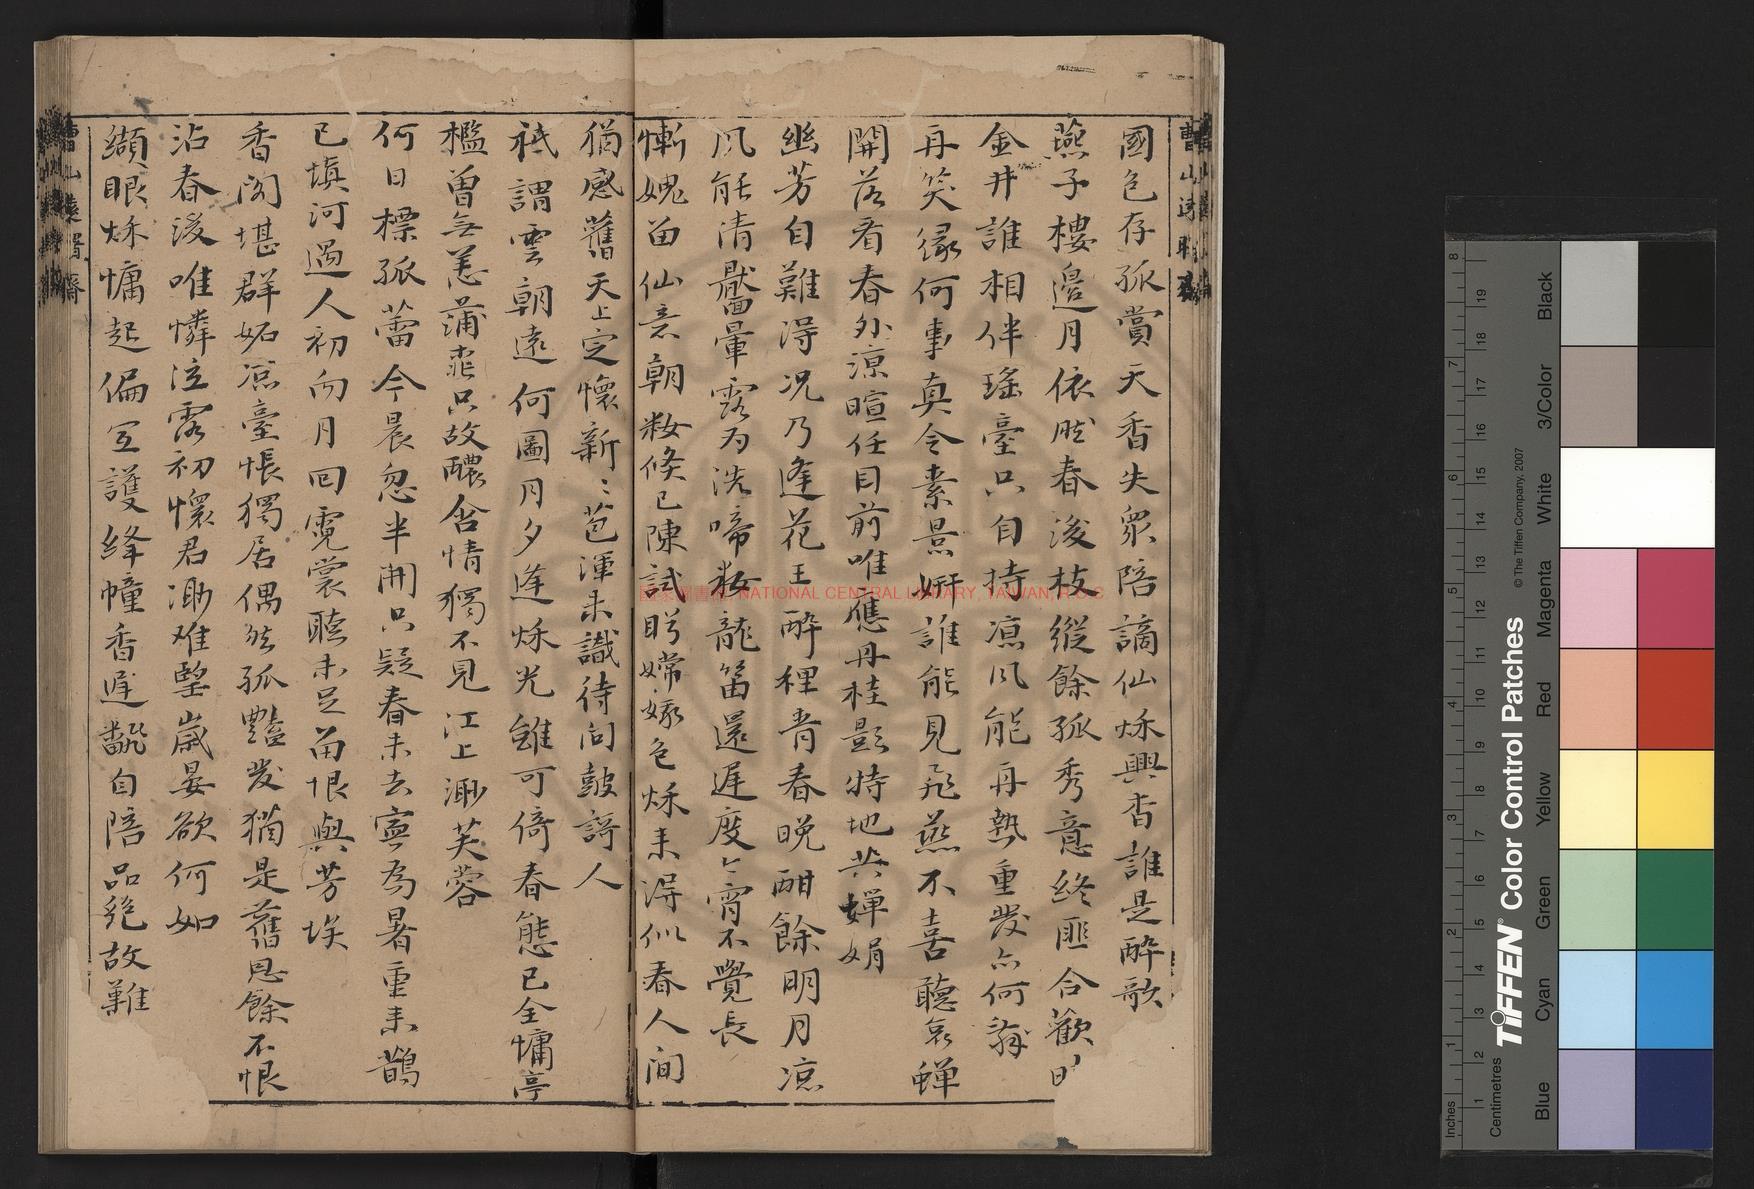 國色存孤賞天香失衆陪謫仙秌興杳誰是醉歌
燕子樓邊月依然春後枝縱餘孤秀意終匪合歡時
金井誰相伴瑤臺只自持凉風能再熱重發亦何辭
再笑緣何事真令素景妍誰能見飛燕不喜聽哀蟬
開落看春外涼暄任目前唯應丹桂影特地共嬋娟
幽芳自難得況乃逢花王醉裡青春晚酣餘明月凉
風能清暈露為洗啼妝龍笛還遲度今宵不覺長
慚媿留仙意朝妝倏已陳試盼嫦娥色秌来得似春人間
猶感舊天上定懷新新苞渾未識待問皷謌人
祇謂雲朝遠何圖月夕逢秌光雖可倚春態已全慵亭
檻曾無恙蒲帘只故醲含情獨不見江上涉芙蓉
何日標孤蕾今晨忽半開只疑春未去寧為暑重来鵲
已塡河過人初向月回霓裳聽未足留恨與芳埃
香閣堪群妬凉臺悵獨居偶然孤豔發猶是舊恩餘不恨
沾春後唯憐泣露初懷君渺难塈歲晏欲何如
纈眼秌慵起偏宜護絳幢香遲飜自陪品絶故難
曹山
TIFFEN® Color Control Patches
© The Tiffen Company, 2007
Inches
Centimetres
Blue
Cyan
Green
Yellow
Red
Magenta
White
3/Color
Black
NATIONAL CENTRAL LIBRARY, TAIWAN, R.O.C